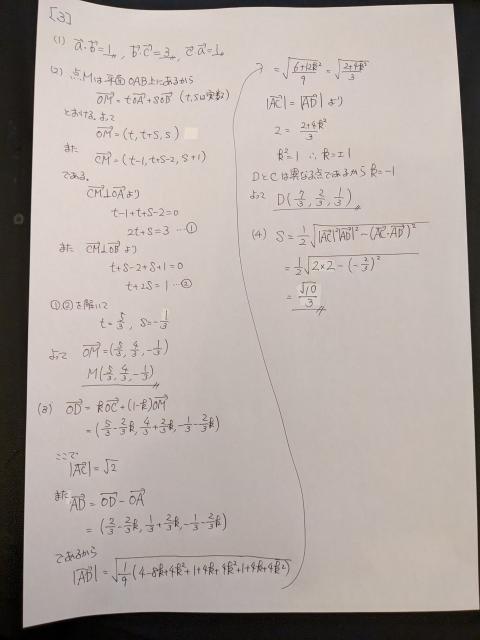 [3]
(1) a⃗・b⃗=1, b⃗・c⃗=3, c⃗・a⃗=1
(2) 点Mは平面OAB上にあるから
OM⃗=tOA⃗+sOB⃗ (t,sは実数)
とおける。よって
OM⃗=(t, t+s, s)
また
CM⃗=(t-1, t+s-2, s+1)
である。
CM⃗⊥OA⃗より
t-1+t+s-2=0
2t+s=3 …①
また CM⃗⊥OB⃗より
t+s-2+s+1=0
t+2s=1 …②
①②を解いて
t=5/3, s=-1/3
よって OM⃗=(5/3, 4/3, -1/3)
M(5/3, 4/3, -1/3)
(3) OD⃗=kOC⃗+(1-k)OM⃗
=(5/3-2/3k, 4/3+2/3k, -1/3-2/3k)
ここで
|AC⃗|=√2
また AD⃗=OD⃗-OA⃗
=(2/3-2/3k, 1/3+2/3k, -1/3-2/3k)
であるから
|AD⃗|=√(1/9(4-8k+4k²+1+4k+4k²+1+4k+4k²))
=√((6+12k²)/9)=√((2+4k²)/3)
|AC⃗|=|AD⃗|より
2=(2+4k²)/3
k²=1 ∴k=±1
DとCは異なる点であるからk=-1
よって D(7/3, 2/3, 1/3)
(4) S=1/2√(|AC⃗|²|AD⃗|²-(AC⃗・AD⃗)²)
=1/2√(2×2-(-2/3)²)
=√10/3